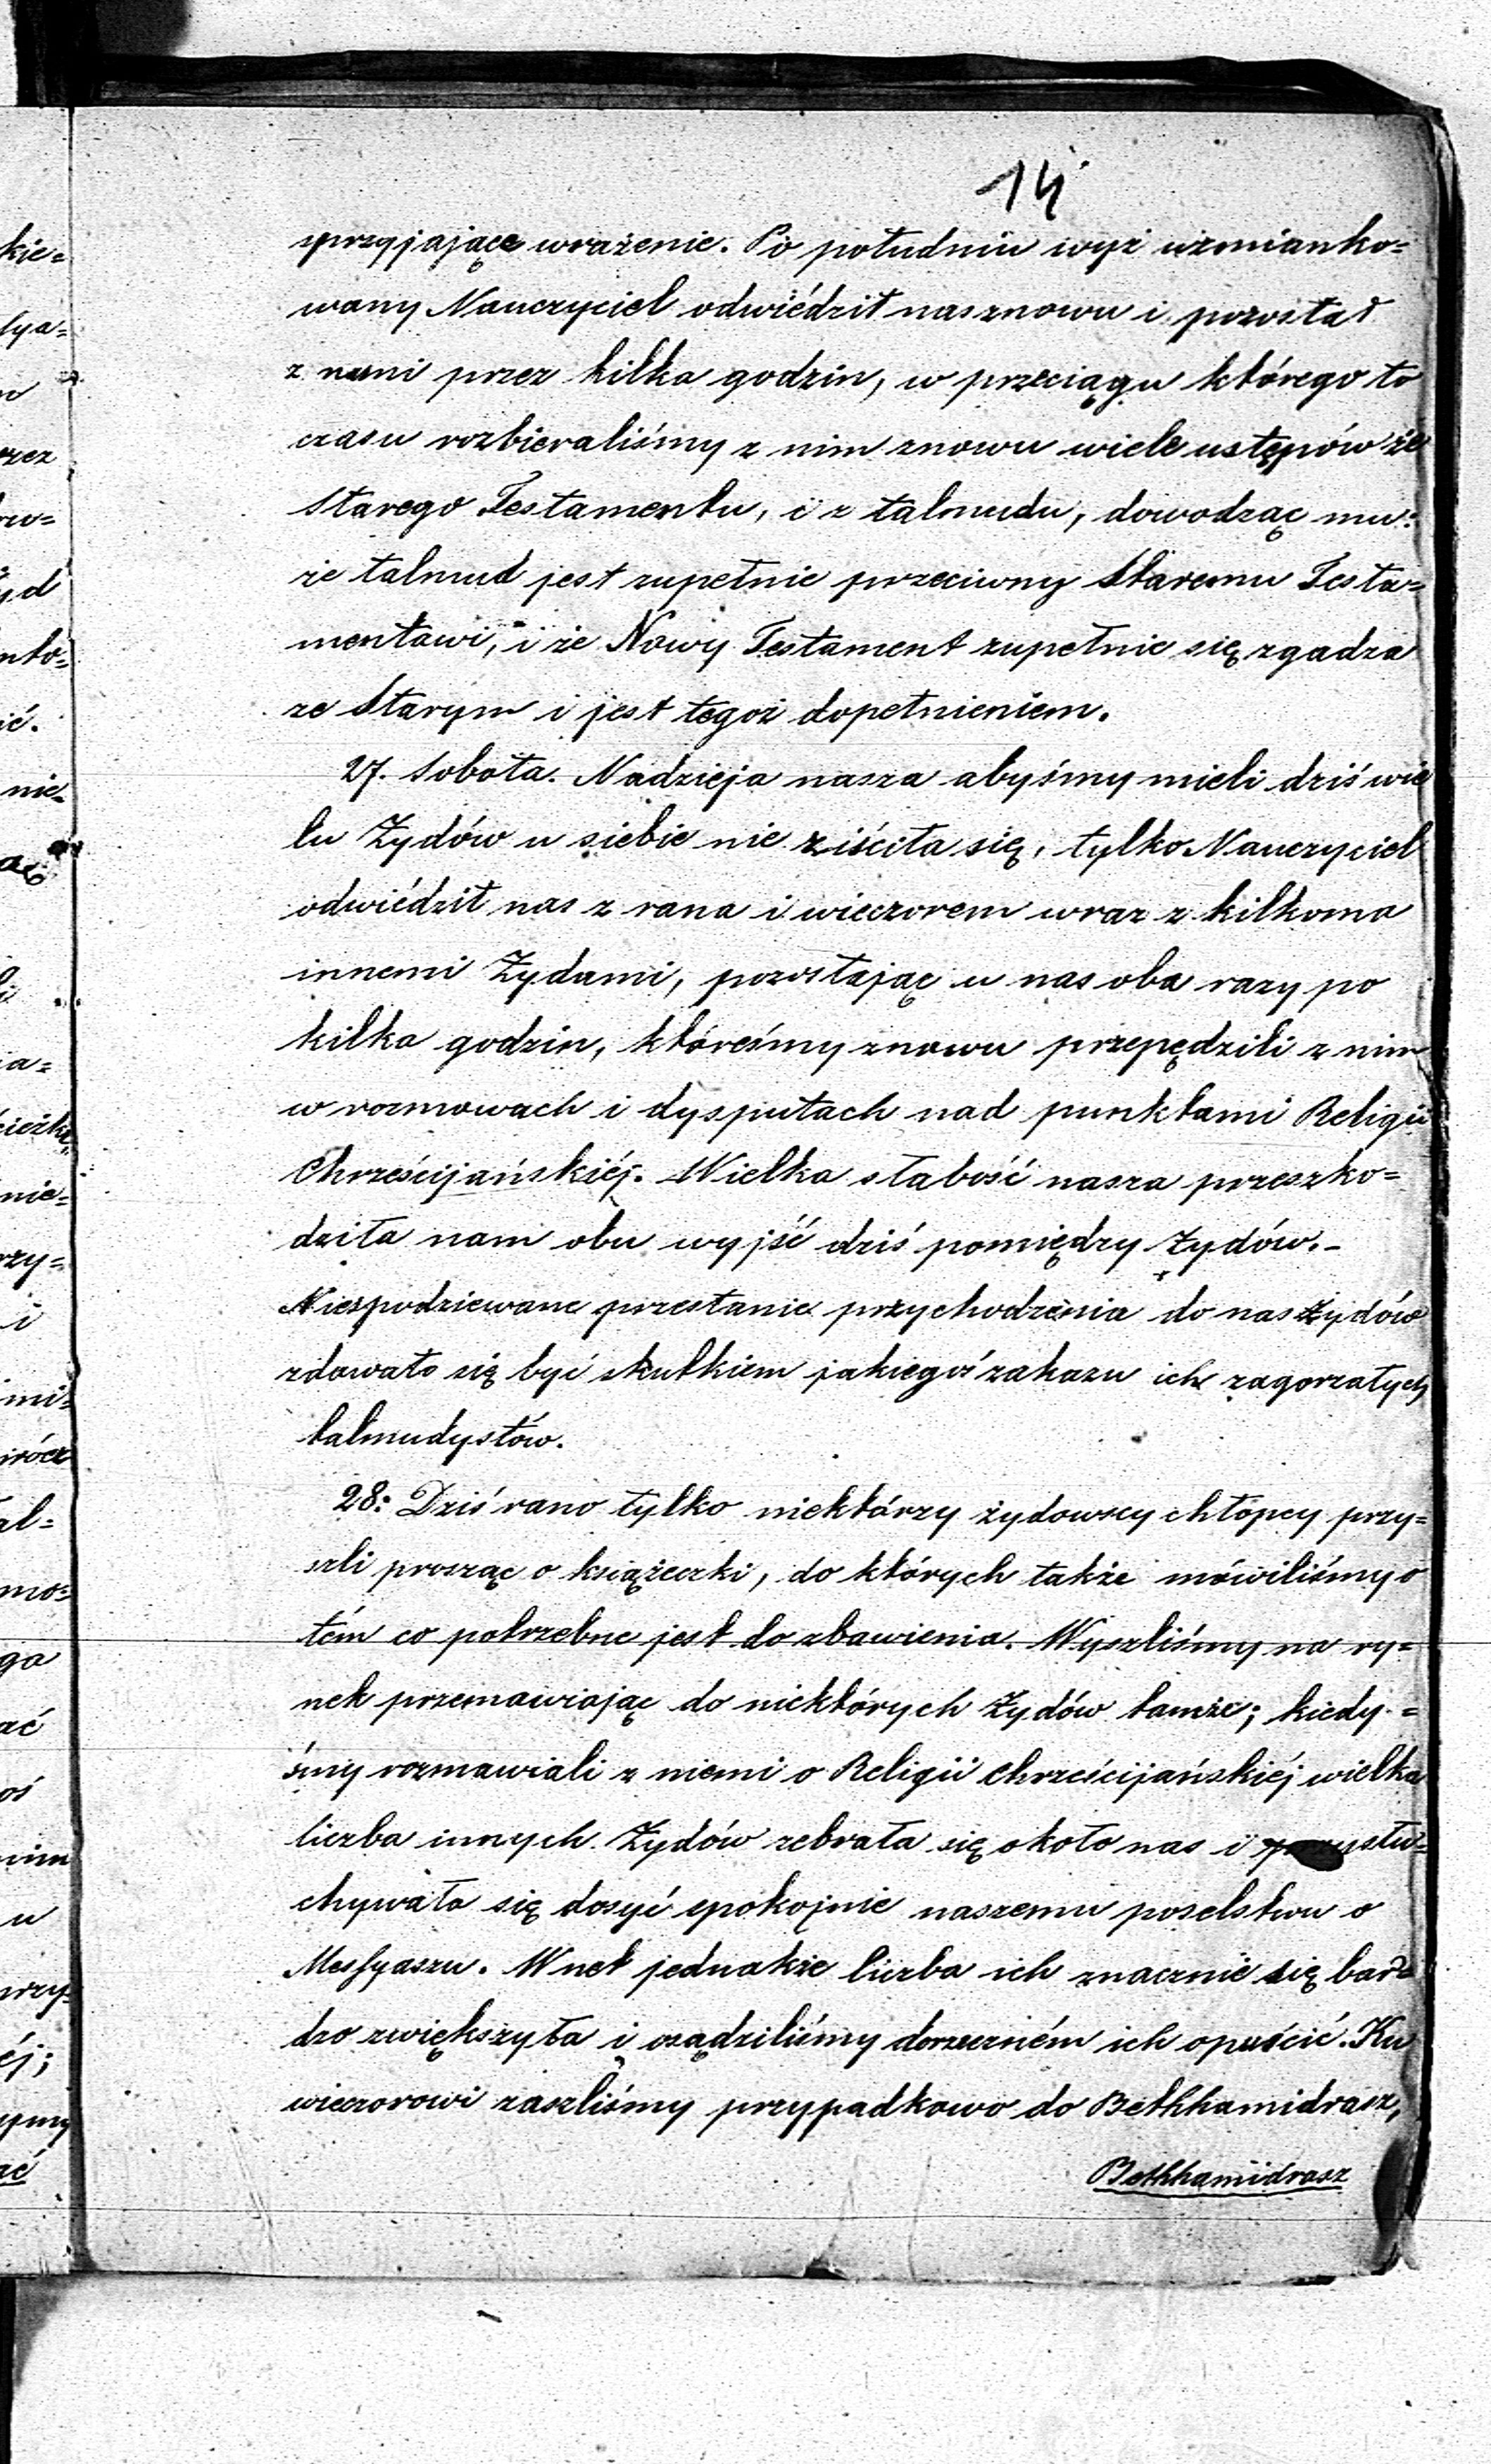 14
sprzyjające wrażenie. Po południu wyż wzmianko=
wany Nauczyciel odwiédził nas znowu i pozostał
z nami przez kilka godzin, w przeciągu którego to
czasu rozbieraliśmy z nim znowu wiele ustępów ze
Starego Testamentu, i z talmudu, dowodząc mu:
że talmud jest zupełnie przeciwny Staremu Testa=
mentowi, i że Nowy Testament zupełnie się zgadza
ze Starym i jest tegoż dopełnieniem.
27. Sobota. Nadzieja nasza abyśmy mieli dziś wie
lu Żydów u siebie nie ziściła się, tylko Nauczyciel
odwiédził nas z rana i wieczorem wraz z kilkoma
innemi Żydami, pozostając u nas oba razy po
kilka godzin, któreśmy znowu przepędzili z nim
w rozmowach i dysputach nad punktami Religii
Chrześcijańskiéj. Wielka słabość nasza przeszko=
dziła nam obu wyjść dziś pomiędzy Żydów.-
Niespodziewane przestanie przychodzenia do nas Żydów
zdawało się być skutkiem jakiegoś zakazu ich zagorzałych
talmudystów.
28: Dziś rano tylko niektórzy żydowscy chłopcy przy=
szli prosząc o książeczki, do których także mówiliśmy o
tém co potrzebne jest do zbawienia. Wyszliśmy na ry=
nek przemawiając do niektórych Żydów tamże; kiedy=
śmy rozmawiali z niemi o Religii chrześcijańskiéj wielka
liczba innych Żydów zebrała się około nas i przysłu=
chywała się dosyć spokojnie naszemu poselstwu o
Messyaszu. Wnet jednakże liczba ich znacznie się bar
dzo zwiększyła i osądziliśmy dorzeczném ich opuścić. Ku
wieczorowi zaszliśmy przypadkowo do Bethhamidrasz,
Bethhamidrasz